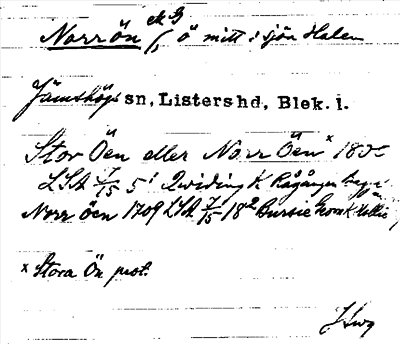 Norrön, ö mitt i sjön Halen
Jämshögs sn, Listers hd, Blek. l.
Stor Öen eller Norr Öen x 18
LSA 7/15 5¹ Qviding K Rågången
Norr öen 1709 LSA 7/15 18² Bursie Geom K
x Stora Ön prot.